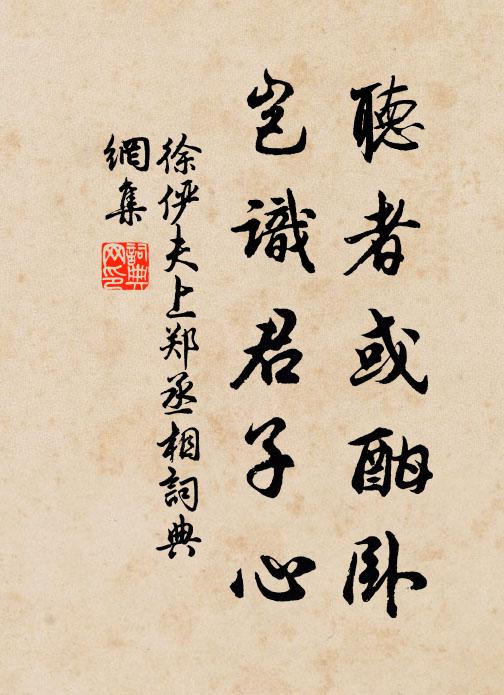 聽者或酣卧
豈識君子心
徐俨夫上郑丞相詞典
網集
詞典網印